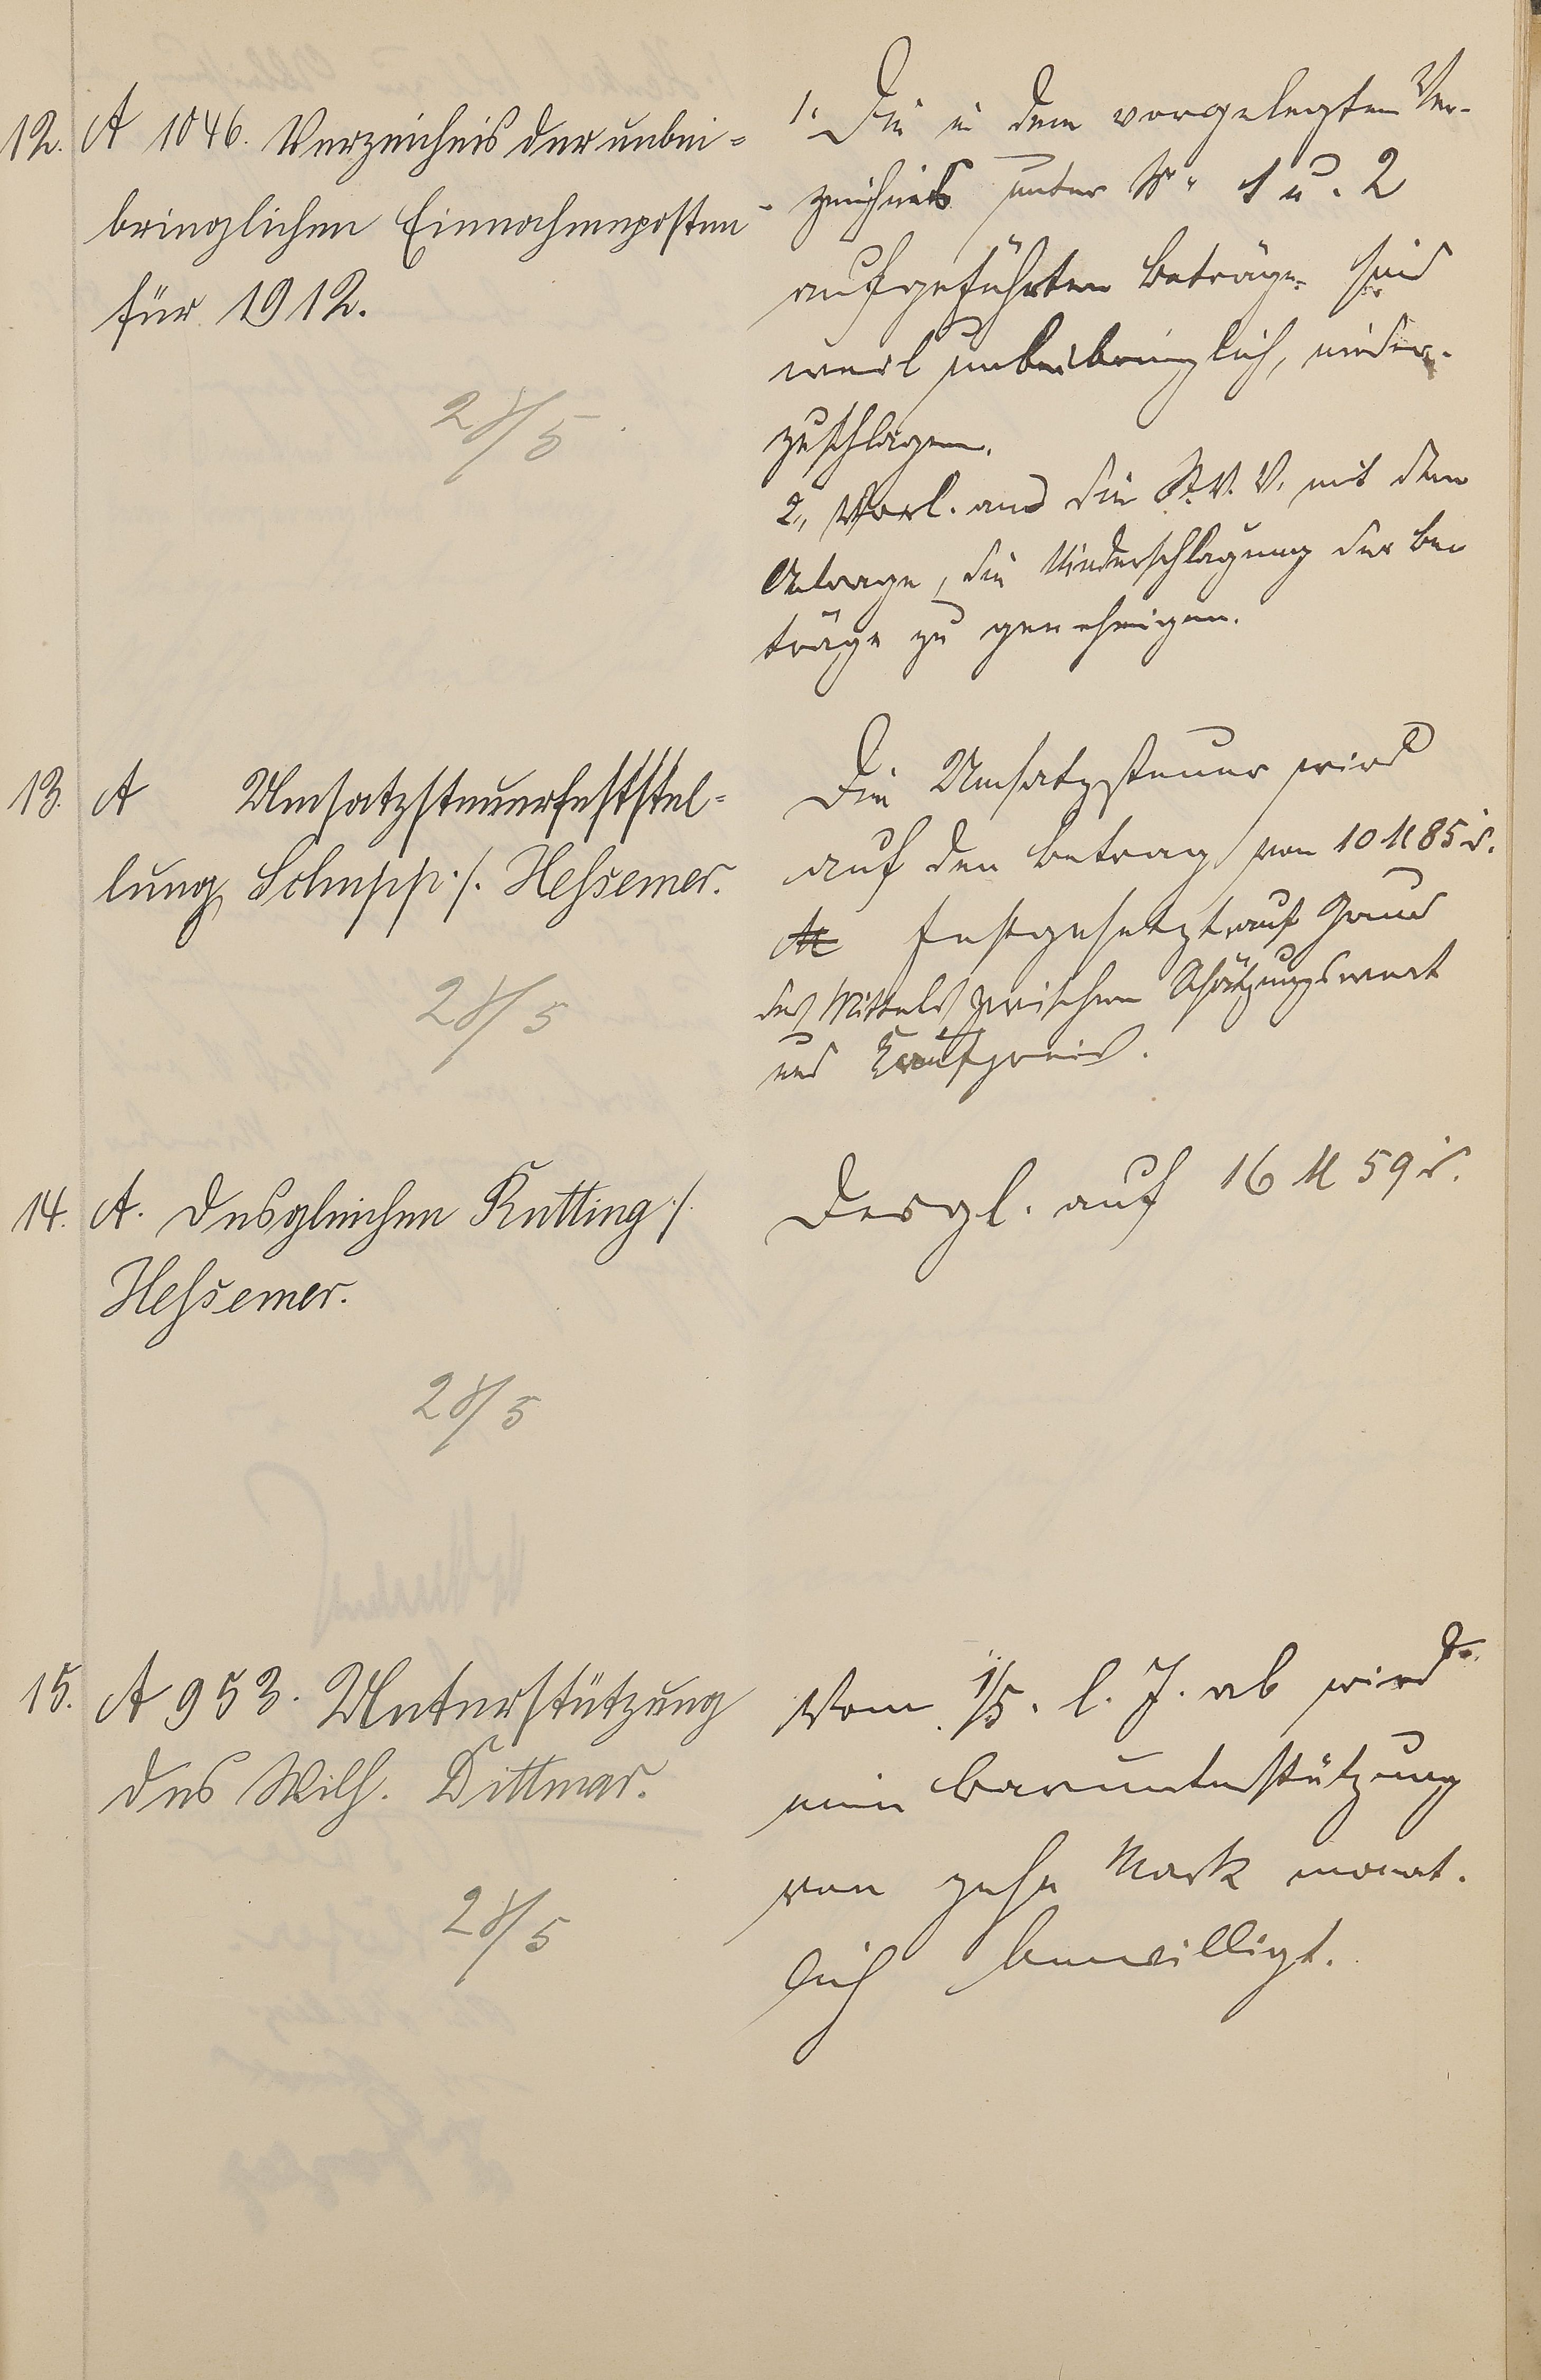 12. A 1046. Verzeichnis der unbei-
bringlichen Einnahmeposten
für 1912.
28/5
1. Die in dem vorgelegten Ver-
zeichnis unter No 1 u. 2
aufgeführten Beträge sind
weil unbeibringlich, nieder-
zuschlagen.
2, Vorl. an die St. V. V. mit dem
Antrage, die Niederschlagung der Be
träge zu genehmigen.
13. A Umsatzsteuerfeststel-
lung Schupp ./. Hessemer.
28/5
Die Umsatzsteuer wird
auf den Betrag von 10 M 85 d.
M festgesetzt auf Grund
des Mittels zwischen Schätzungswert
und Kaufpreis.
14. A. Desgleichen Kutting ./.
Hessemer.
28/5
Desgl. auf 16 M 59 d.
15. A 953. Unterstützung
des Wilh. Dittmar.
28/5
Vom 1/5. l. J. ab wird
eine Barunterstützung
von zehn Mark monat-
lich bewilligt.